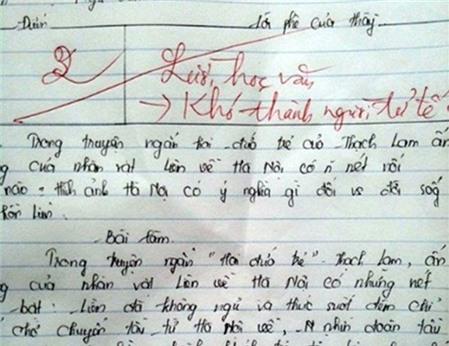 Điểm Lời phê của thầy
2 Lười học văn
→ Khó thành người tử tế
Trong truyện ngắn hai đứa trẻ của Thạch Lam ấn
g của nhân vật Liên về Hà Nội có n nét nổi
nào. hình ảnh Hà Nội có ý nghĩa gì đối vs đời sống
hồn Liên.
Bài làm.
Trong truyện ngắn "Hai đứa trẻ" Thạch Lam, ấn
g của nhân vật Liên về Hà Nội có những nét
bật. Liên đã không ngủ và thức suốt đêm chỉ
chờ chuyến tàu từ Hà Nội về, N nhìn đoàn tàu